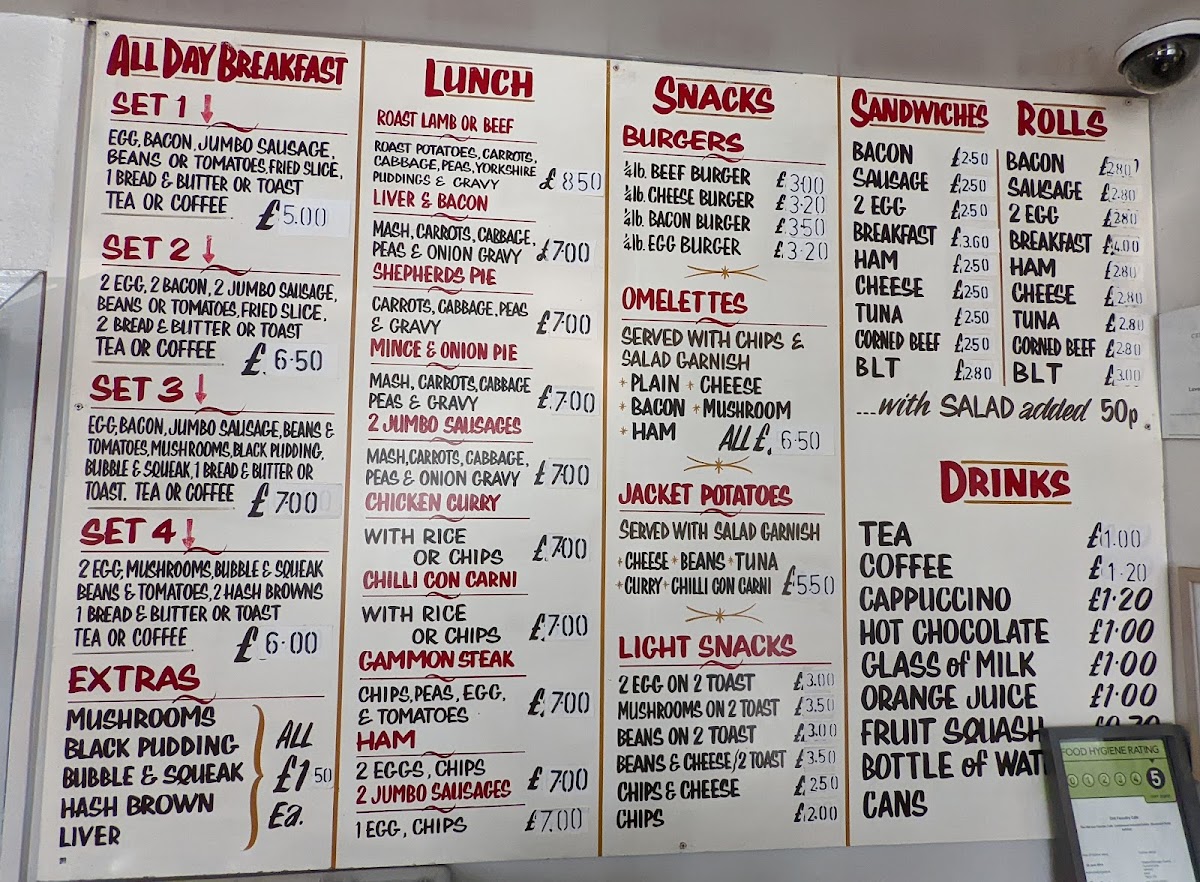 ALL DAY BREAKFAST
SET 1
EGG, BACON, JUMBO SAUSAGE,
BEANS OR TOMATOES, FRIED SLICE,
1 BREAD & BUTTER OR TOAST
TEA OR COFFEE £5.00
SET 2
2 EGG, 2 BACON, 2 JUMBO SAUSAGE,
BEANS OR TOMATOES, FRIED SLICE,
2 BREAD & BUTTER OR TOAST
TEA OR COFFEE £6.50
SET 3
EGG, BACON, JUMBO SAUSAGE, BEANS &
TOMATOES, MUSHROOMS, BLACK PUDDING,
BUBBLE & SQUEAK, 1 BREAD & BUTTER OR
TOAST. TEA OR COFFEE £7.00
SET 4
2 EGG, MUSHROOMS, BUBBLE & SQUEAK
BEANS & TOMATOES, 2 HASH BROWNS
1 BREAD & BUTTER OR TOAST
TEA OR COFFEE £6.00
EXTRAS
MUSHROOMS
BLACK PUDDING
BUBBLE & SQUEAK
HASH BROWN
LIVER
ALL
£1 50
Ea.
LUNCH
ROAST LAMB OR BEEF
ROAST POTATOES, CARROTS,
CABBAGE, PEAS, YORKSHIRE
PUDDINGS & GRAVY £8.50
LIVER & BACON
MASH, CARROTS, CABBAGE,
PEAS & ONION GRAVY £7.00
SHEPHERDS PIE
CARROTS, CABBAGE, PEAS
& GRAVY £7.00
MINCE & ONION PIE
MASH, CARROTS, CABBAGE
PEAS & GRAVY £7.00
2 JUMBO SAUSAGES
MASH, CARROTS, CABBAGE,
PEAS & ONION GRAVY £7.00
CHICKEN CURRY
WITH RICE
OR CHIPS £7.00
CHILLI CON CARNI
WITH RICE
OR CHIPS £7.00
GAMMON STEAK
CHIPS, PEAS, EGG,
& TOMATOES £7.00
HAM
2 EGGS, CHIPS £7.00
2 JUMBO SAUSAGES
1 EGG, CHIPS £7.00
SNACKS
BURGERS
¼lb. BEEF BURGER £3.00
¼lb. CHEESE BURGER £3.20
¼lb. BACON BURGER £3.50
¼lb. EGG BURGER £3.20
OMELETTES
SERVED WITH CHIPS &
SALAD GARNISH
+ PLAIN + CHEESE
+ BACON + MUSHROOM
+ HAM ALL £6.50
JACKET POTATOES
SERVED WITH SALAD GARNISH
+ CHEESE + BEANS + TUNA
+ CURRY + CHILLI CON CARNI £5.50
LIGHT SNACKS
2 EGG ON 2 TOAST £3.00
MUSHROOMS ON 2 TOAST £3.50
BEANS ON 2 TOAST £3.00
BEANS & CHEESE/2 TOAST £3.50
CHIPS & CHEESE £2.50
CHIPS £2.00
SANDWICHES
BACON £2.50
SAUSAGE £2.50
2 EGG £2.50
BREAKFAST £3.60
HAM £2.50
CHEESE £2.50
TUNA £2.50
CORNED BEEF £2.50
BLT £2.80
ROLLS
BACON £2.80
SAUSAGE £2.80
2 EGG £2.80
BREAKFAST £4.00
HAM £2.80
CHEESE £2.80
TUNA £2.80
CORNED BEEF £2.80
BLT £3.00
...with SALAD added 50p
DRINKS
TEA £1.00
COFFEE £1.20
CAPPUCCINO £1.20
HOT CHOCOLATE £1.00
GLASS of MILK £1.00
ORANGE JUICE £1.00
FRUIT SQUASH £0.70
BOTTLE of WAT
CANS
FOOD HYGIENE RATING
0 1 2 3 4 5